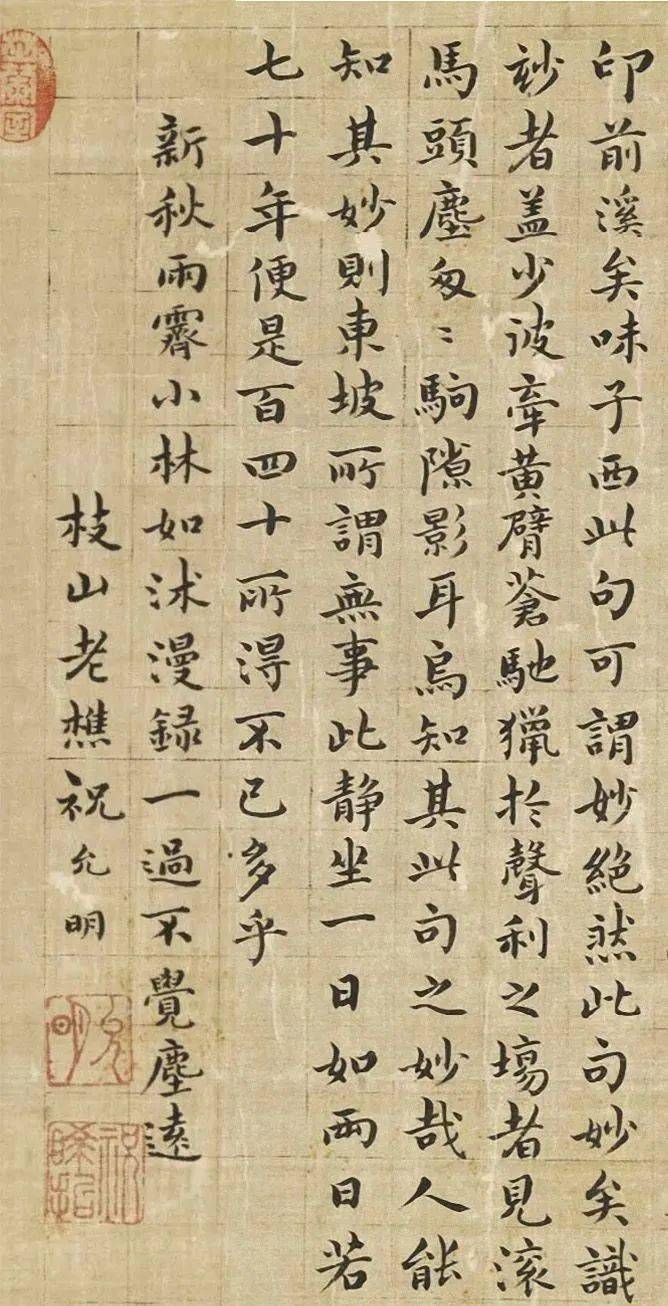 印前溪矣味子西此句可謂妙絕然此句妙矣識
妙者盖少彼牽黄臂蒼馳獵於聲利之塲者見滚
馬頭塵匆〻駒隙影耳烏知其此句之妙哉人能
知其妙則東坡所謂無事此静坐一日如兩日若
七十年便是百四十所得不已多乎
新秋雨霽小林如沐漫録一過不覺塵遠
枝山老樵祝允明
允明